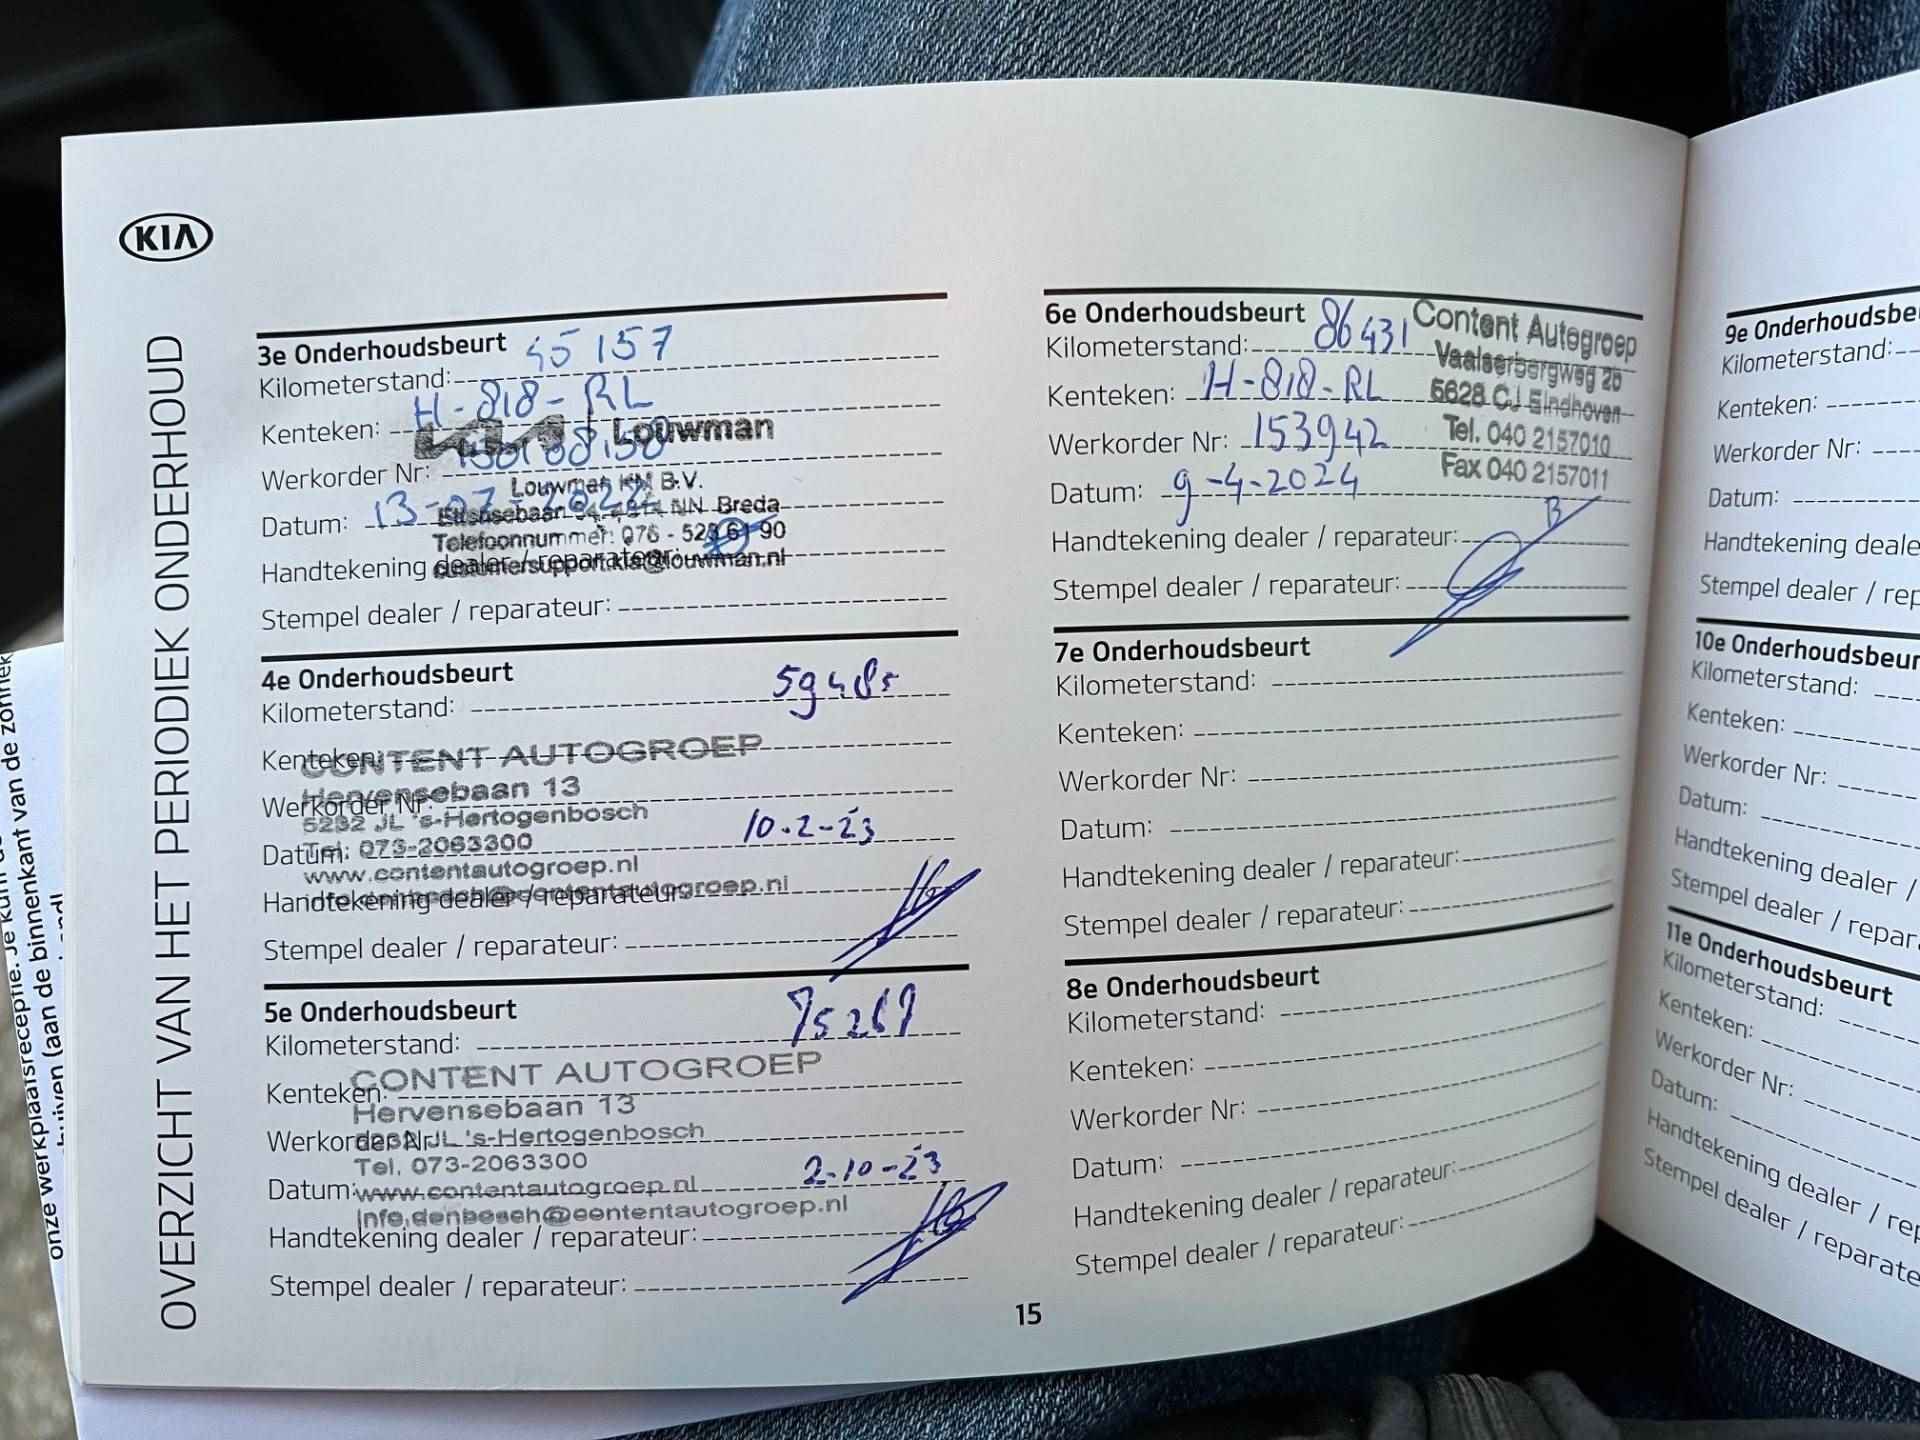 KIA
OVERZICHT VAN HET PERIODIEK ONDERHOUD
3e Onderhoudsbeurt
Kilometerstand: 45157
Kenteken: H-818-RL
KIA Louwman
Werkorder Nr:
Louwman KM B.V.
Datum: 13-07-2022
NN Breda
Telefoonnummer: 076 - 523 61 90
Handtekening dealer / reparateur:
customersupport.kia@louwman.nl
Stempel dealer / reparateur:
4e Onderhoudsbeurt
Kilometerstand: 59485
Kenteken:
CONTENT AUTOGROEP
Hervensebaan 13
Werkorder Nr:
5232 JL 's-Hertogenbosch
Datum: 10-2-23
Tel: 073-2063300
www.contentautogroep.nl
info.denbosch@contentautogroep.nl
Handtekening dealer / reparateur:
Stempel dealer / reparateur:
5e Onderhoudsbeurt
Kilometerstand: 75267
CONTENT AUTOGROEP
Kenteken:
Hervensebaan 13
Werkorder Nr:
5232 JL 's-Hertogenbosch
Tel. 073-2063300
Datum: 2-10-23
www.contentautogroep.nl
info.denbosch@contentautogroep.nl
Handtekening dealer / reparateur:
Stempel dealer / reparateur:
6e Onderhoudsbeurt
Kilometerstand: 86431
Kenteken: H-818-RL
Werkorder Nr: 153942
Datum: 9-4-2024
Content Autogroep
Vaalserbergweg 2b
5628 CJ Eindhoven
Tel. 040 2157010
Fax 040 2157011
Handtekening dealer / reparateur:
Stempel dealer / reparateur:
7e Onderhoudsbeurt
Kilometerstand:
Kenteken:
Werkorder Nr:
Datum:
Handtekening dealer / reparateur:
Stempel dealer / reparateur:
8e Onderhoudsbeurt
Kilometerstand:
Kenteken:
Werkorder Nr:
Datum:
Handtekening dealer / reparateur:
Stempel dealer / reparateur:
15
9e Onderhoudsbe
Kilometerstand:
Kenteken:
Werkorder Nr:
Datum:
Handtekening deale
Stempel dealer / rep
10e Onderhoudsbeur
Kilometerstand:
Kenteken:
Werkorder Nr:
Datum:
Handtekening dealer /
Stempel dealer / repar
11e Onderhoudsbeurt
Kilometerstand:
Kenteken:
Werkorder Nr:
Datum:
Handtekening dealer / rep
Stempel dealer / reparate
onze werkplaatsreceptie. Je kunt
(aan de binnenkant van de zonnek